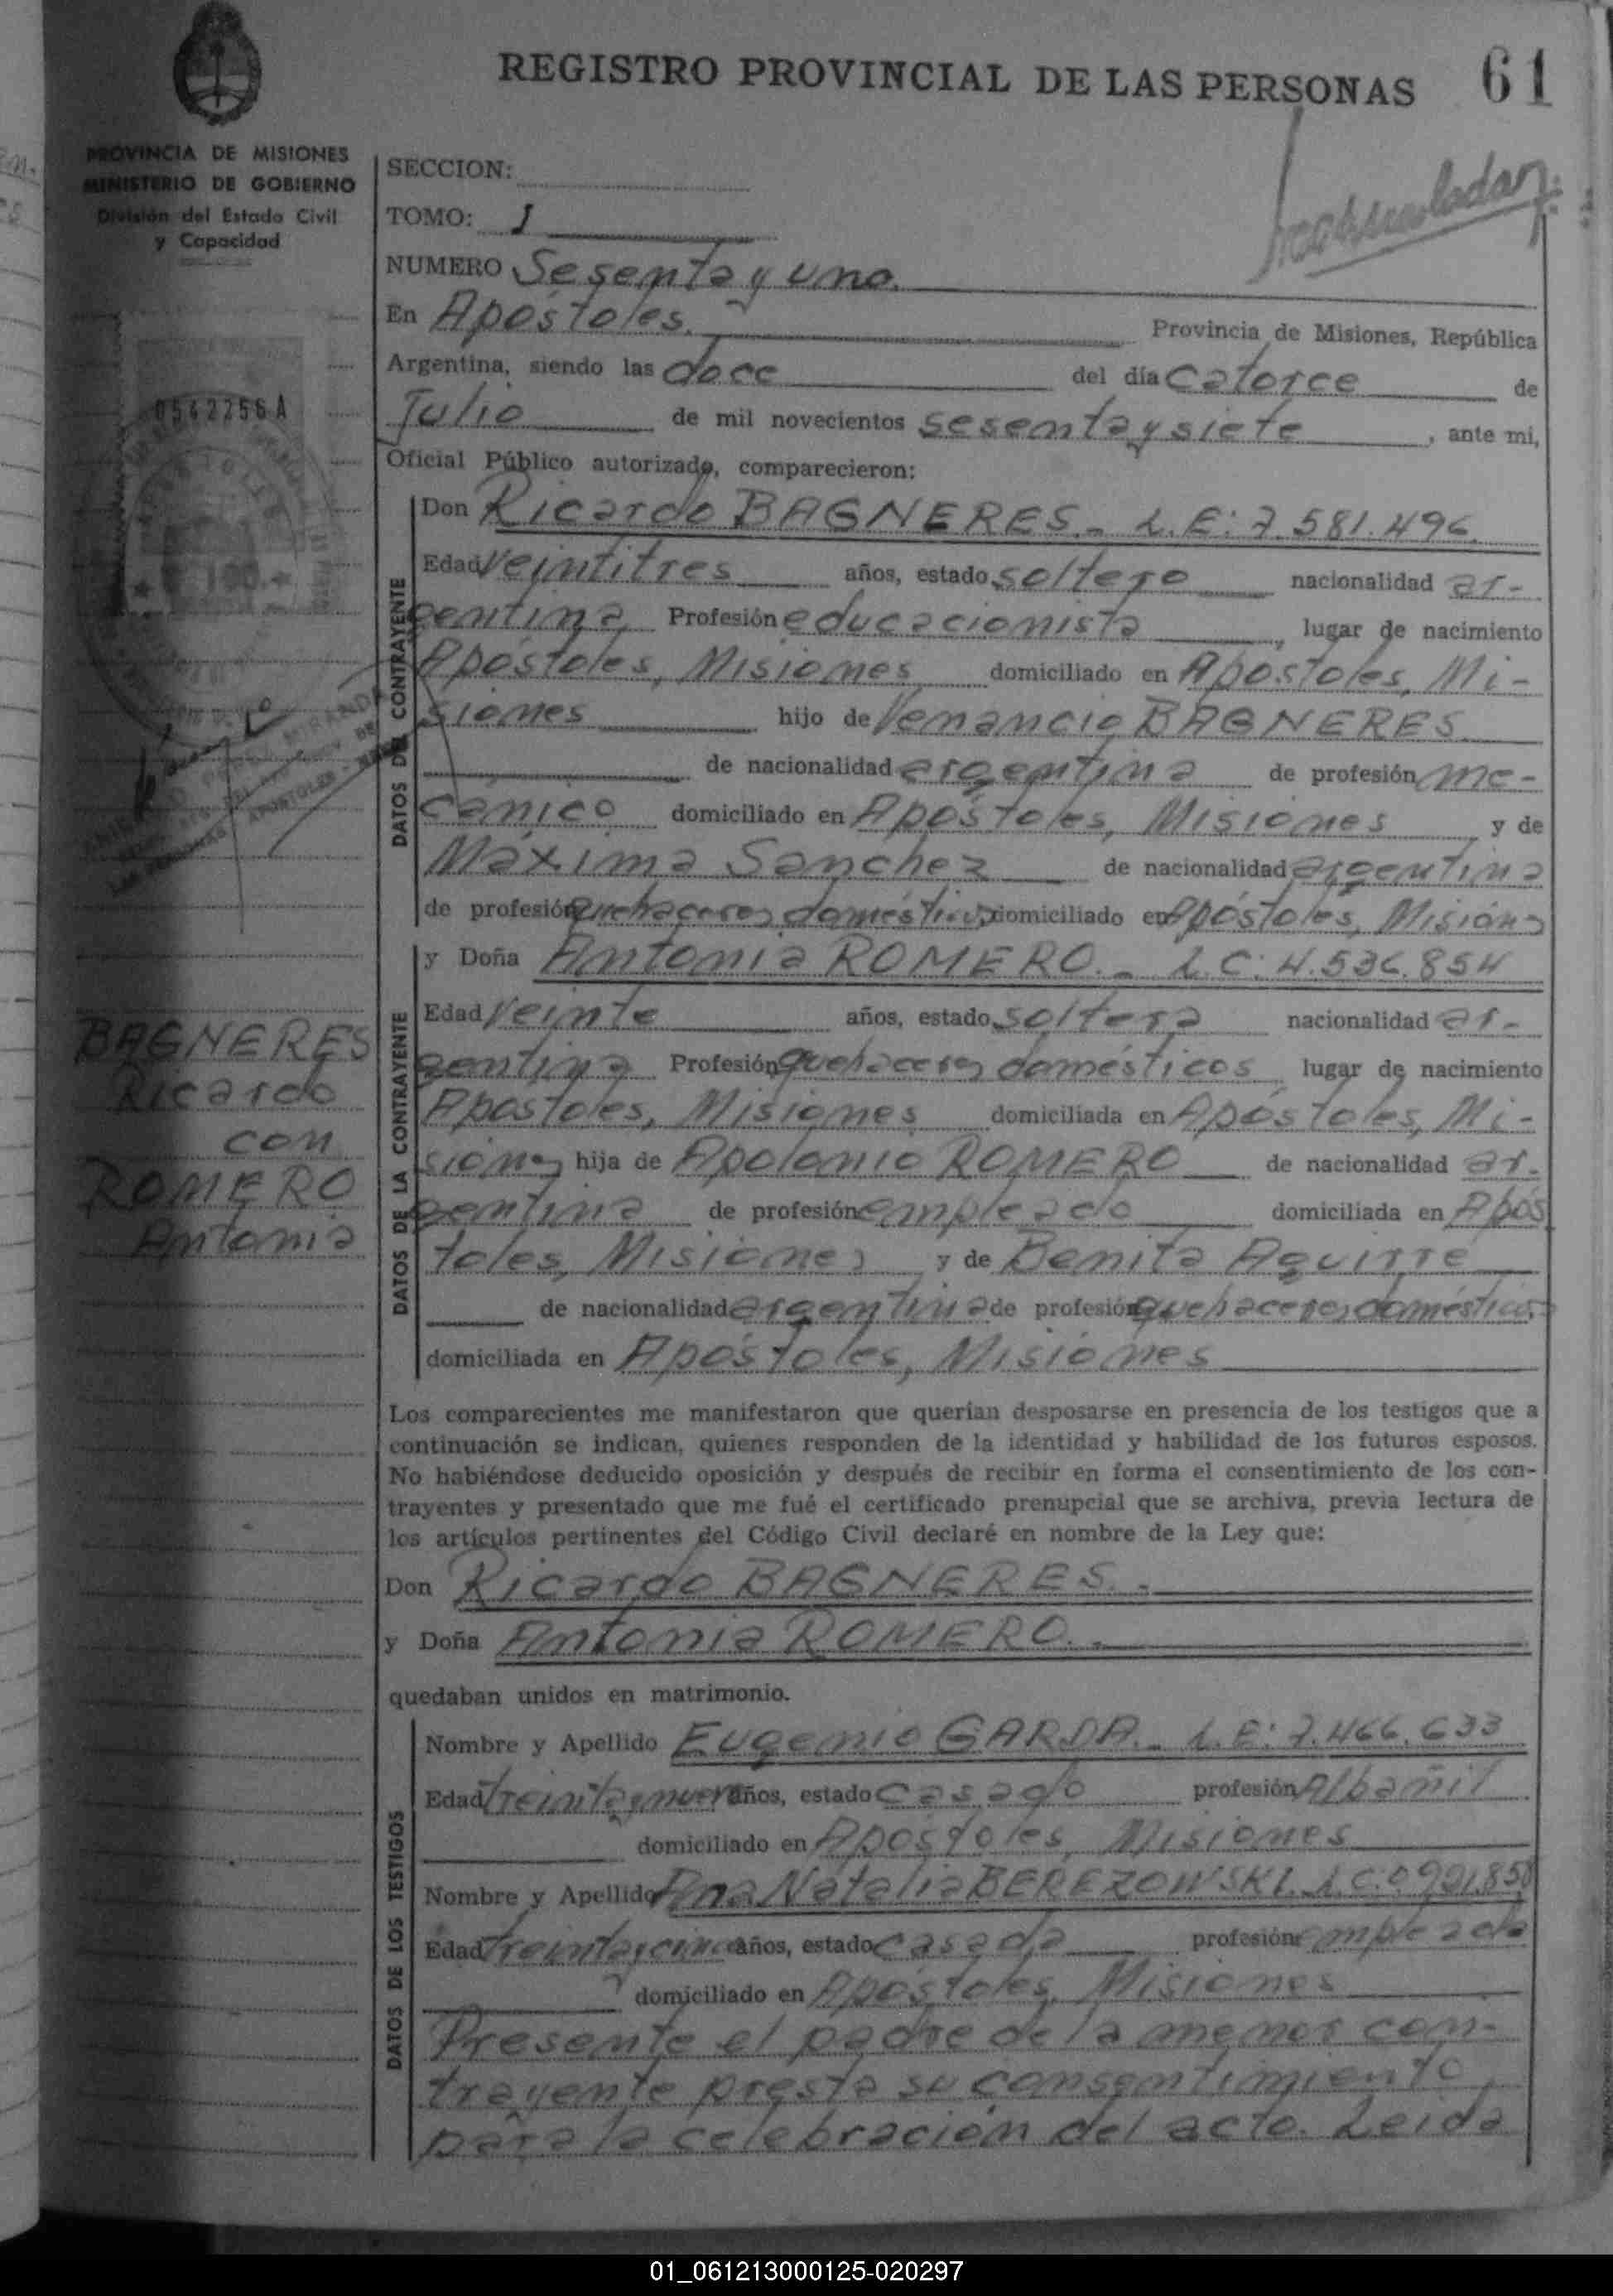 REGISTRO PROVINCIAL DE LAS PERSONAS 61
PROVINCIA DE MISIONES
MINISTERIO DE GOBIERNO
División del Estado Civil
y Capacidad
0542256 A
BAGNERES
Ricardo
con
ROMERO
Antonia
SECCION:
TOMO: I
NUMERO Sesenta y uno.
En Apóstoles. Provincia de Misiones, República
Argentina, siendo las doce del día catorce de
Julio de mil novecientos sesenta y siete, ante mi,
Oficial Público autorizado, comparecieron:
DATOS DEL CONTRAYENTE
Don Ricardo BAGNERES.- L.E: 7.581.496.
Edad veintitres años, estado soltero nacionalidad ar-
gentina Profesión educacionista, lugar de nacimiento
Apóstoles, Misiones domiciliado en Apóstoles, Mi-
siones hijo de Venancio BAGNERES
de nacionalidad argentina de profesión me-
cánico domiciliado en Apóstoles, Misiones y de
Máxima Sanchez de nacionalidad argentina
de profesión quehaceres domésticos domiciliado en Apóstoles, Misiones
DATOS DE LA CONTRAYENTE
y Doña Antonia ROMERO.- L.C: 4.536.854
Edad veinte años, estado soltera nacionalidad ar-
gentina Profesión quehaceres domésticos lugar de nacimiento
Apostoles, Misiones domiciliada en Apóstoles, Mi-
siones hija de Apolonio ROMERO de nacionalidad ar-
gentina de profesión empleado domiciliada en Após
toles, Misiones y de Benita Aguirre
de nacionalidad argentina de profesión quehaceres domésticos
domiciliada en Apóstoles, Misiones
Los comparecientes me manifestaron que querían desposarse en presencia de los testigos que a
continuación se indican, quienes responden de la identidad y habilidad de los futuros esposos.
No habiéndose deducido oposición y después de recibir en forma el consentimiento de los con-
trayentes y presentado que me fué el certificado prenupcial que se archiva, previa lectura de
los artículos pertinentes del Código Civil declaré en nombre de la Ley que:
Don Ricardo BAGNERES.-
y Doña Antonia ROMERO.-
quedaban unidos en matrimonio.
DATOS DE LOS TESTIGOS
Nombre y Apellido Eugenio GARDA.- L.E: 7.466.633
Edad treinta y nueve años, estado casado profesión Albañil
domiciliado en Apóstoles, Misiones
Nombre y Apellido Ana Natalia BEREZOWSKI. L.C:0.921.858
Edad treinta y cinco años, estado casada profesión empleada
domiciliado en Apóstoles, Misiones
Presente el padre de la menor con-
trayente presta su consentimiento
para la celebración del acto. Leida
01_061213000125-020297